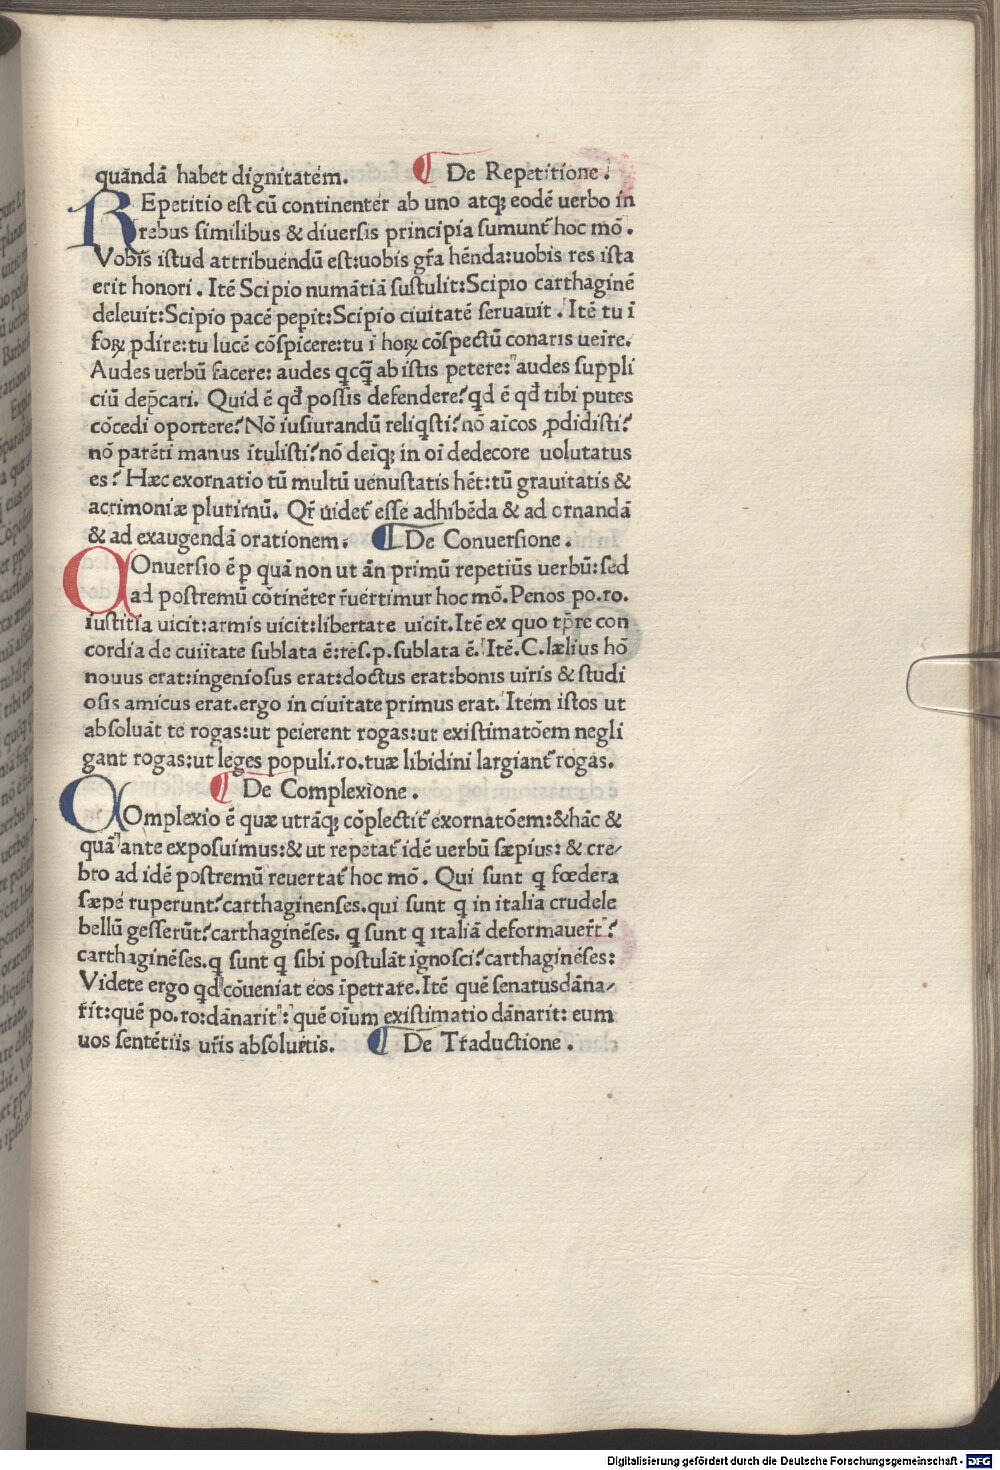 quandã habet dignitatem. ¶ De Repetitione.
REpetitio est cũ continenter ab uno atqꝫ eodẽ uerbo in
rebus similibus & diuersis principia sumunt᷑ hoc mõ.
Vobis istud attribuendũ est:uobis gr̃a hẽnda:uobis res ista
erit honori. Itẽ Scipio numãtiã sustulit:Scipio carthaginẽ
deleuit:Scipio pacẽ pepit:Scipio ciuitatẽ seruauit. Itẽ tu ĩ
foꝝ ꝓdire:tu lucẽ cõspicere:tu ĩ hoꝝ cõspectũ conaris ueĩre.
Audes uerbũ facere: audes qcq̃ ab istis petere: audes suppli
ciũ dep̃cari. Quid ẽ qd̃ possis defendere? qd ẽ qd̃ tibi putes
cõcedi oportere? Nõ iusiurandũ reliqsti? nõ aĩcos ꝓdidisti?
nõ parẽti manus ĩtulisti? nõ deĩqꝫ in oĩ dedecore uolutatus
es? Hæc exornatio tũ multũ uenustatis hẽt:tũ grauitatis &
acrimoniæ plurimũ. Qr̃ uidet᷑ esse adhibẽda & ad ornandã
& ad exaugendã orationem. ¶ De Conuersione.
COnuersio ẽ p quã non ut ãn primũ repetiũs uerbũ:sed
ad postremũ cõtinẽter r̃uertimur hoc mõ. Penos po.ro.
iustitia uicit:armis uicit:libertate uicit. Itẽ ex quo tp̃re con
cordia de cuiitate sublata ẽ:res.p.sublata ẽ. Itẽ.C.lælius hõ
nouus erat:ingeniosus erat:doctus erat:bonis uiris & studi
osis amicus erat.ergo in ciuitate primus erat. Item istos ut
absoluãt te rogas:ut peierent rogas:ut existimatõem negli
gant rogas:ut leges populi.ro.tuæ libidini largiant᷑ rogas.
¶ De Complexione.
COmplexio ẽ quæ utrãqꝫ cõplectit᷑ exornatõem:&hãc &
quã ante exposuimus:& ut repetat᷑ idẽ uerbũ sæpius: & cre/
bro ad idẽ postremũ reuertat᷑ hoc mõ. Qui sunt q fœdera
sæpe ruperunt? carthaginenses.qui sunt q in italia crudele
bellũ gesserũt? carthaginẽses. q sunt q italiã deformauer̃t?
carthaginẽses.q sunt q sibi postulãt ignosci? carthaginẽses:
Videte ergo qd cõueniat eos ĩpetrare. Itẽ quẽ senatus dãna/
r̃it:quẽ po.ro:dãnarit: quẽ oĩum existimatio dãnarit: eum
uos sentẽtiis ur̃is absoluetis. ¶ De Traductione.
Digitalisierung gefördert durch die Deutsche Forschungsgemeinschaft - DFG